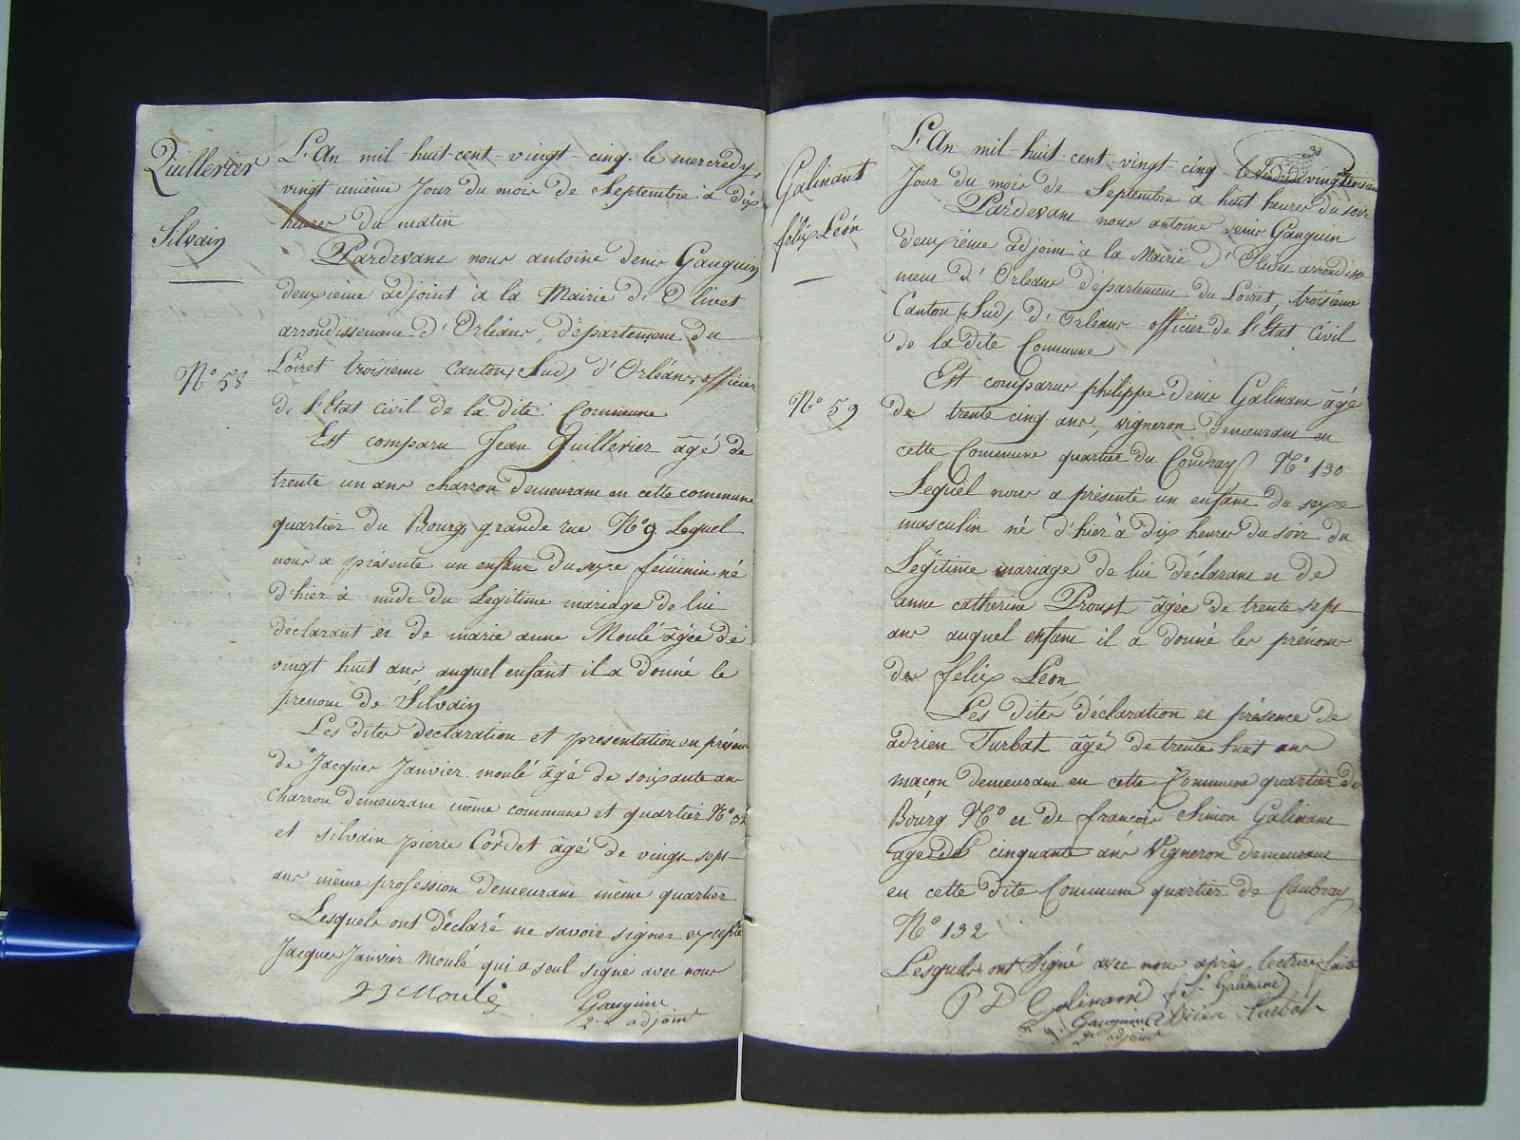 Quillerier
Silvain
N° 58
L'An mil-huit-cent-vingt-cinq. le mercredy,
vingt unième Jour du mois de Septembre à dix
heures du matin
Pardevant nous antoine denis Gauguin
deuxième adjoint à la Mairie d'Olivet
arrondissement d'Orléans, département du
Loiret troisième canton (Sud) d'Orléans, officier
de l'Etat civil de la dite Commune
Est comparu Jean Quillerier âgé de
trente un ans charron demeurant en cette commune
quartier du Bourg grande rue N° 9 Lequel
nous a présenté un enfant du sexe féminin né
d'hier à midi du Legitime mariage de lui
déclarant et de marie anne Moulé âgée de
vingt huit ans, auquel enfant il a donné le
prenom de Silvain
Les dites declaration et presentation en présence
de Jacques Janvier moulé âgé de soixante ans
Charron demeurant même commune et quartier N°
et silvain pierre Cordet âgé de vingt-sept-
ans même profession demeurant même quartier
Lesquels ont déclaré ne savoir signer excepté
Jacques Janvier Moulé qui a seul signé avec nous
JJ Moulé
Gauguin
2e adjoint
Galinant
félix Léon
N° 59
L'An mil-huit-cent-vingt-cinq le vingt
Jour du mois de Septembre à huit heures du soir
Pardevant nous antoine denis Gauguin
deuxième adjoint à la Mairie d'Olivet arrondisse
ment d'Orléans département du Loiret, troisième
Canton (Sud) d'Orléans officier de l'Etat Civil
de la dite Commune
Est comparu philippe denis Galinant âgé
de trente cinq ans, vigneron demeurant en
cette Commune quartier du Coudray N° 130
Lequel nous a présenté un enfant du sexe
masculin né d'hier à dix heures du soir du
Légitime mariage de lui déclarant et de
anne catherine Proust âgée de trente sept
ans auquel enfant il a donné les prénoms
de felix Léon
Les dites déclaration et présence de
adrien Turbat âgé de trente huit ans
maçon demeurant en cette Commune quartier du
Bourg N° et de francois Simon Galinant
âgé de cinquante ans Vigneron demeurant
en cette dite Commune quartier de
N° 132
Lesquels ont Signé avec nous après lecture faite
P D Galinant f. S. Galinant
Gauguin adrien turbat
2e adjoint